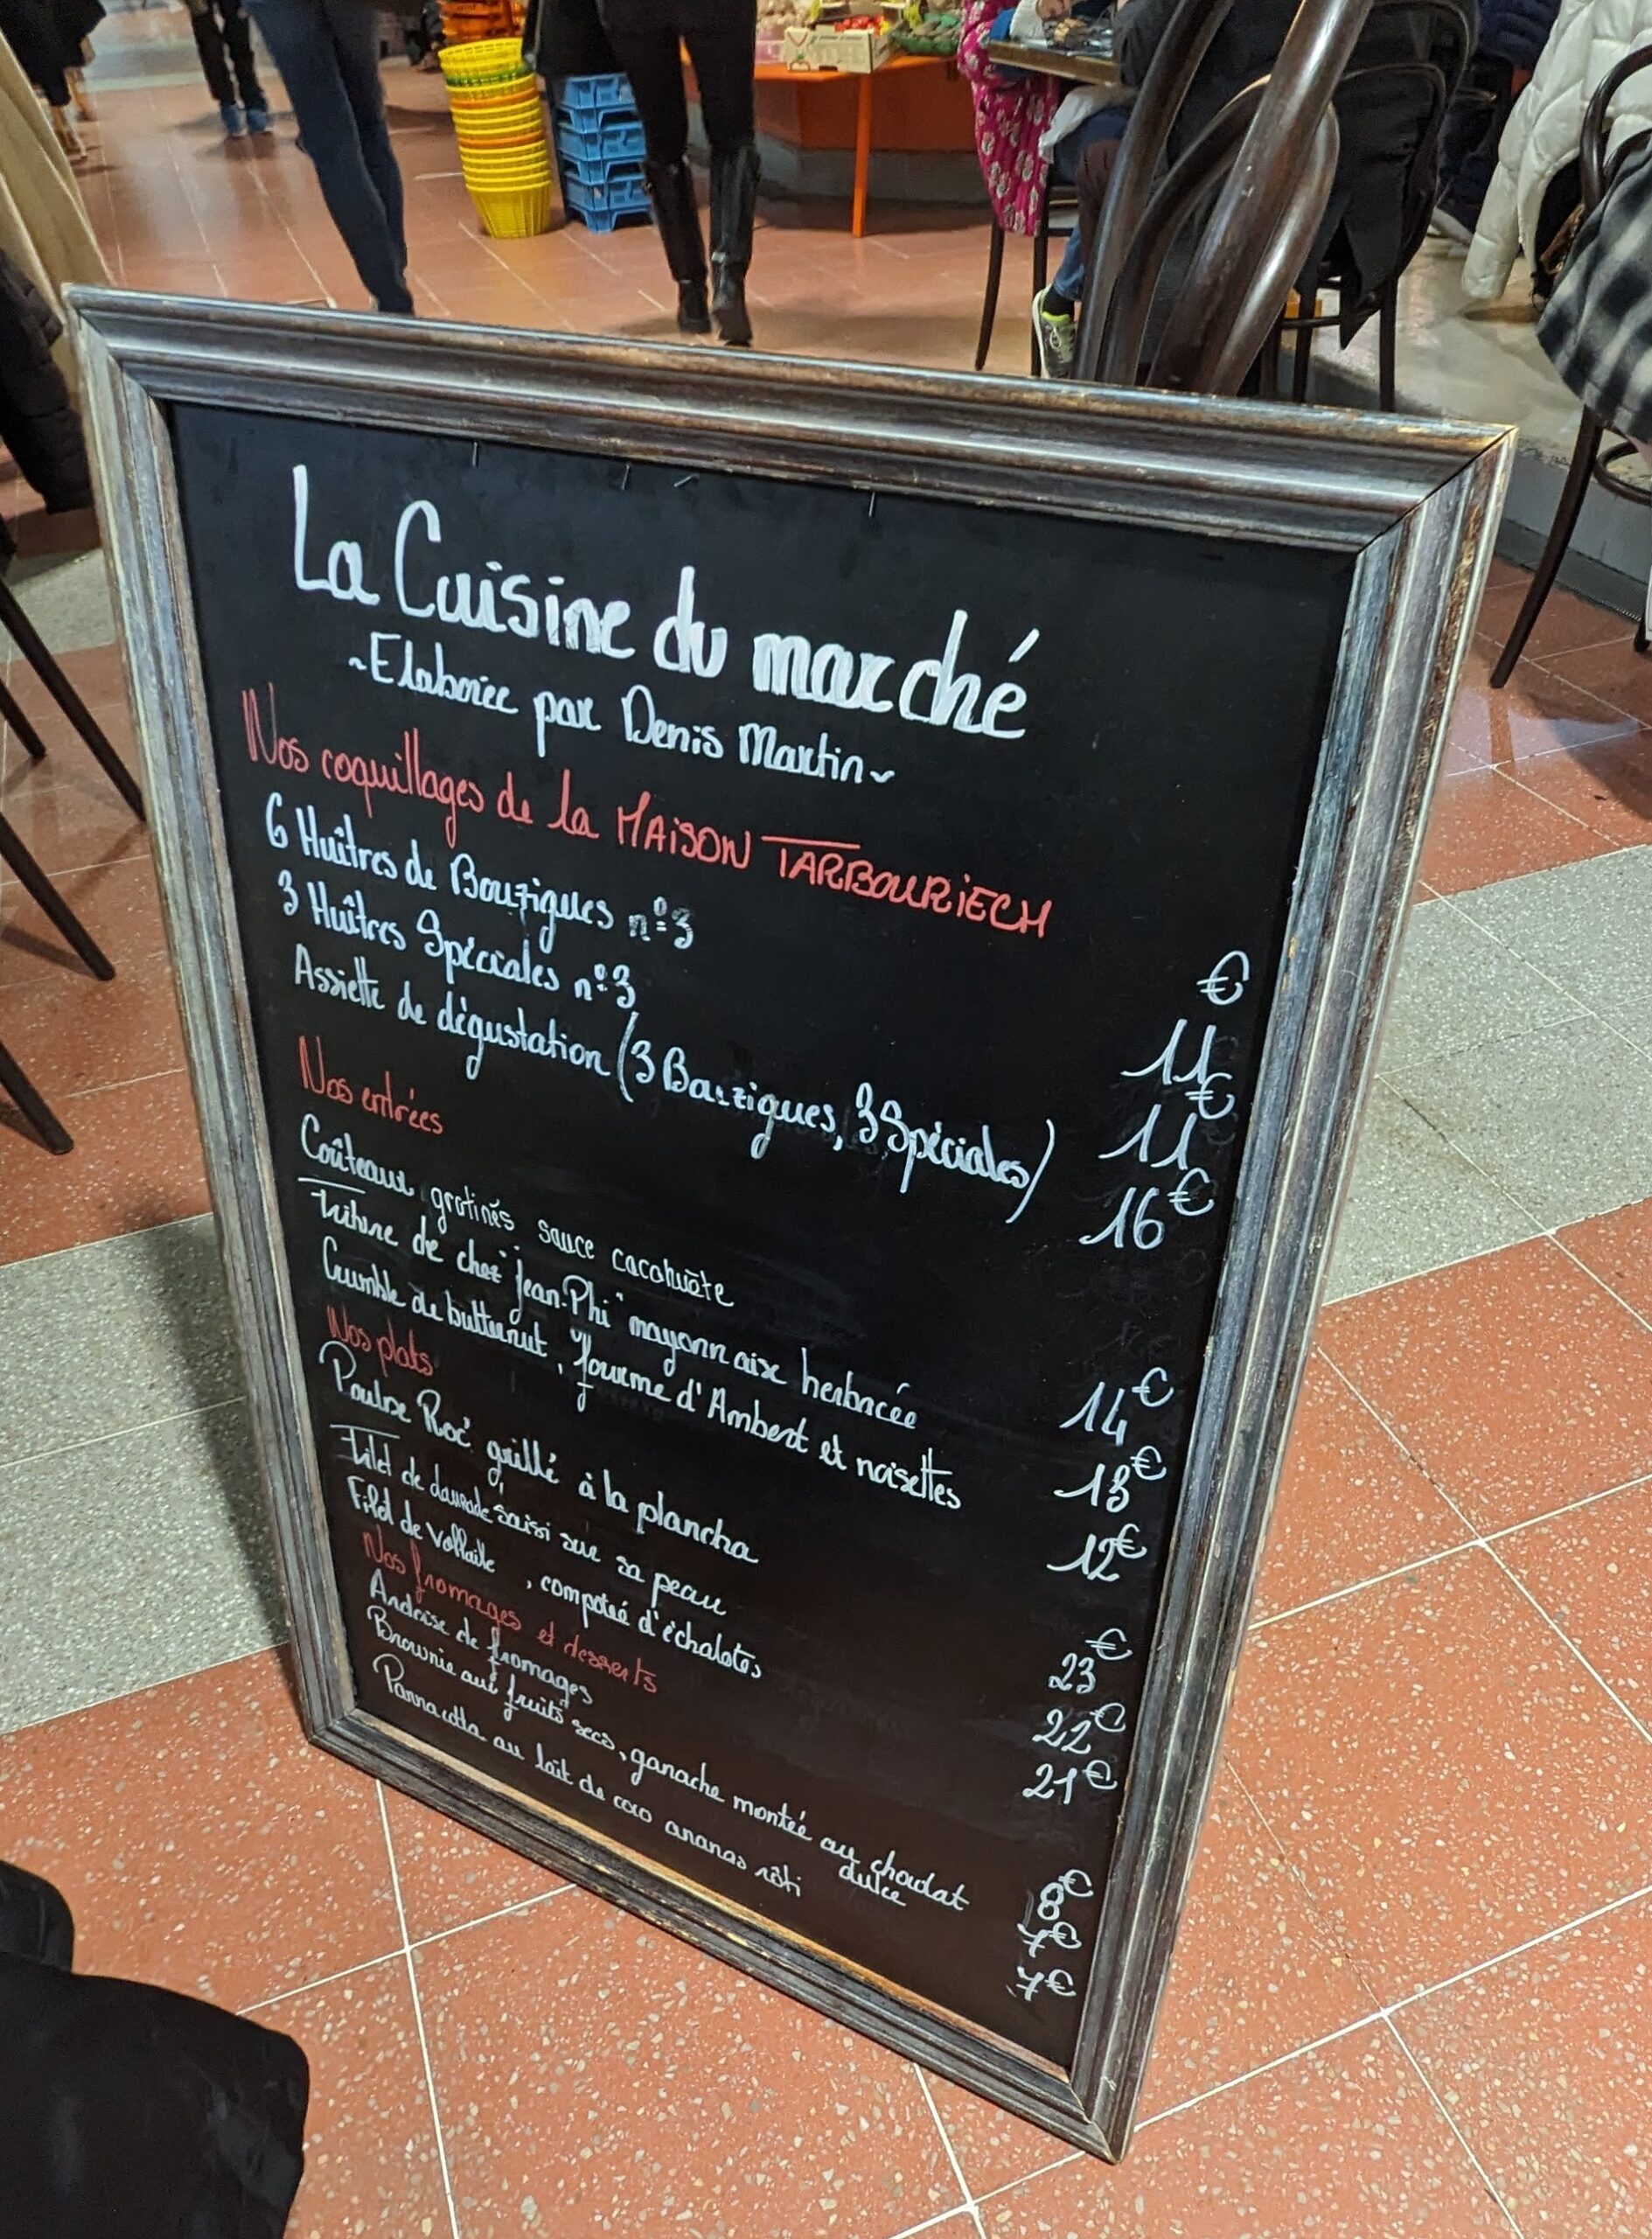 La Cuisine du marché
~Elaborée par Denis Martin~
Nos coquillages de la MAISON TARBOURIECH
6 Huîtres de Bouzigues n°3 11€
3 Huîtres Spéciales n°3 11€
Assiette de dégustation (3 Bouzigues, 3 Spéciales) 16€
Nos entrées
Coûteaux gratinés sauce cacahuète 14€
Friture de chez "Jean-Phi" mayonnaise herbacée 13€
Crumble de butternut, fourme d'Ambert et noisettes 12€
Nos plats
Poulpe Roc' grillé à la plancha 23€
Filet de daurade saisi sur sa peau 22€
Filet de Vollaile, compotée d'échalotes 21€
Nos fromages et desserts
Ardoise de fromages 8€
Brownie aux fruits secs, ganache montée au chocolat 7€
dulce
Pannacotta au lait de coco ananas rôti 7€